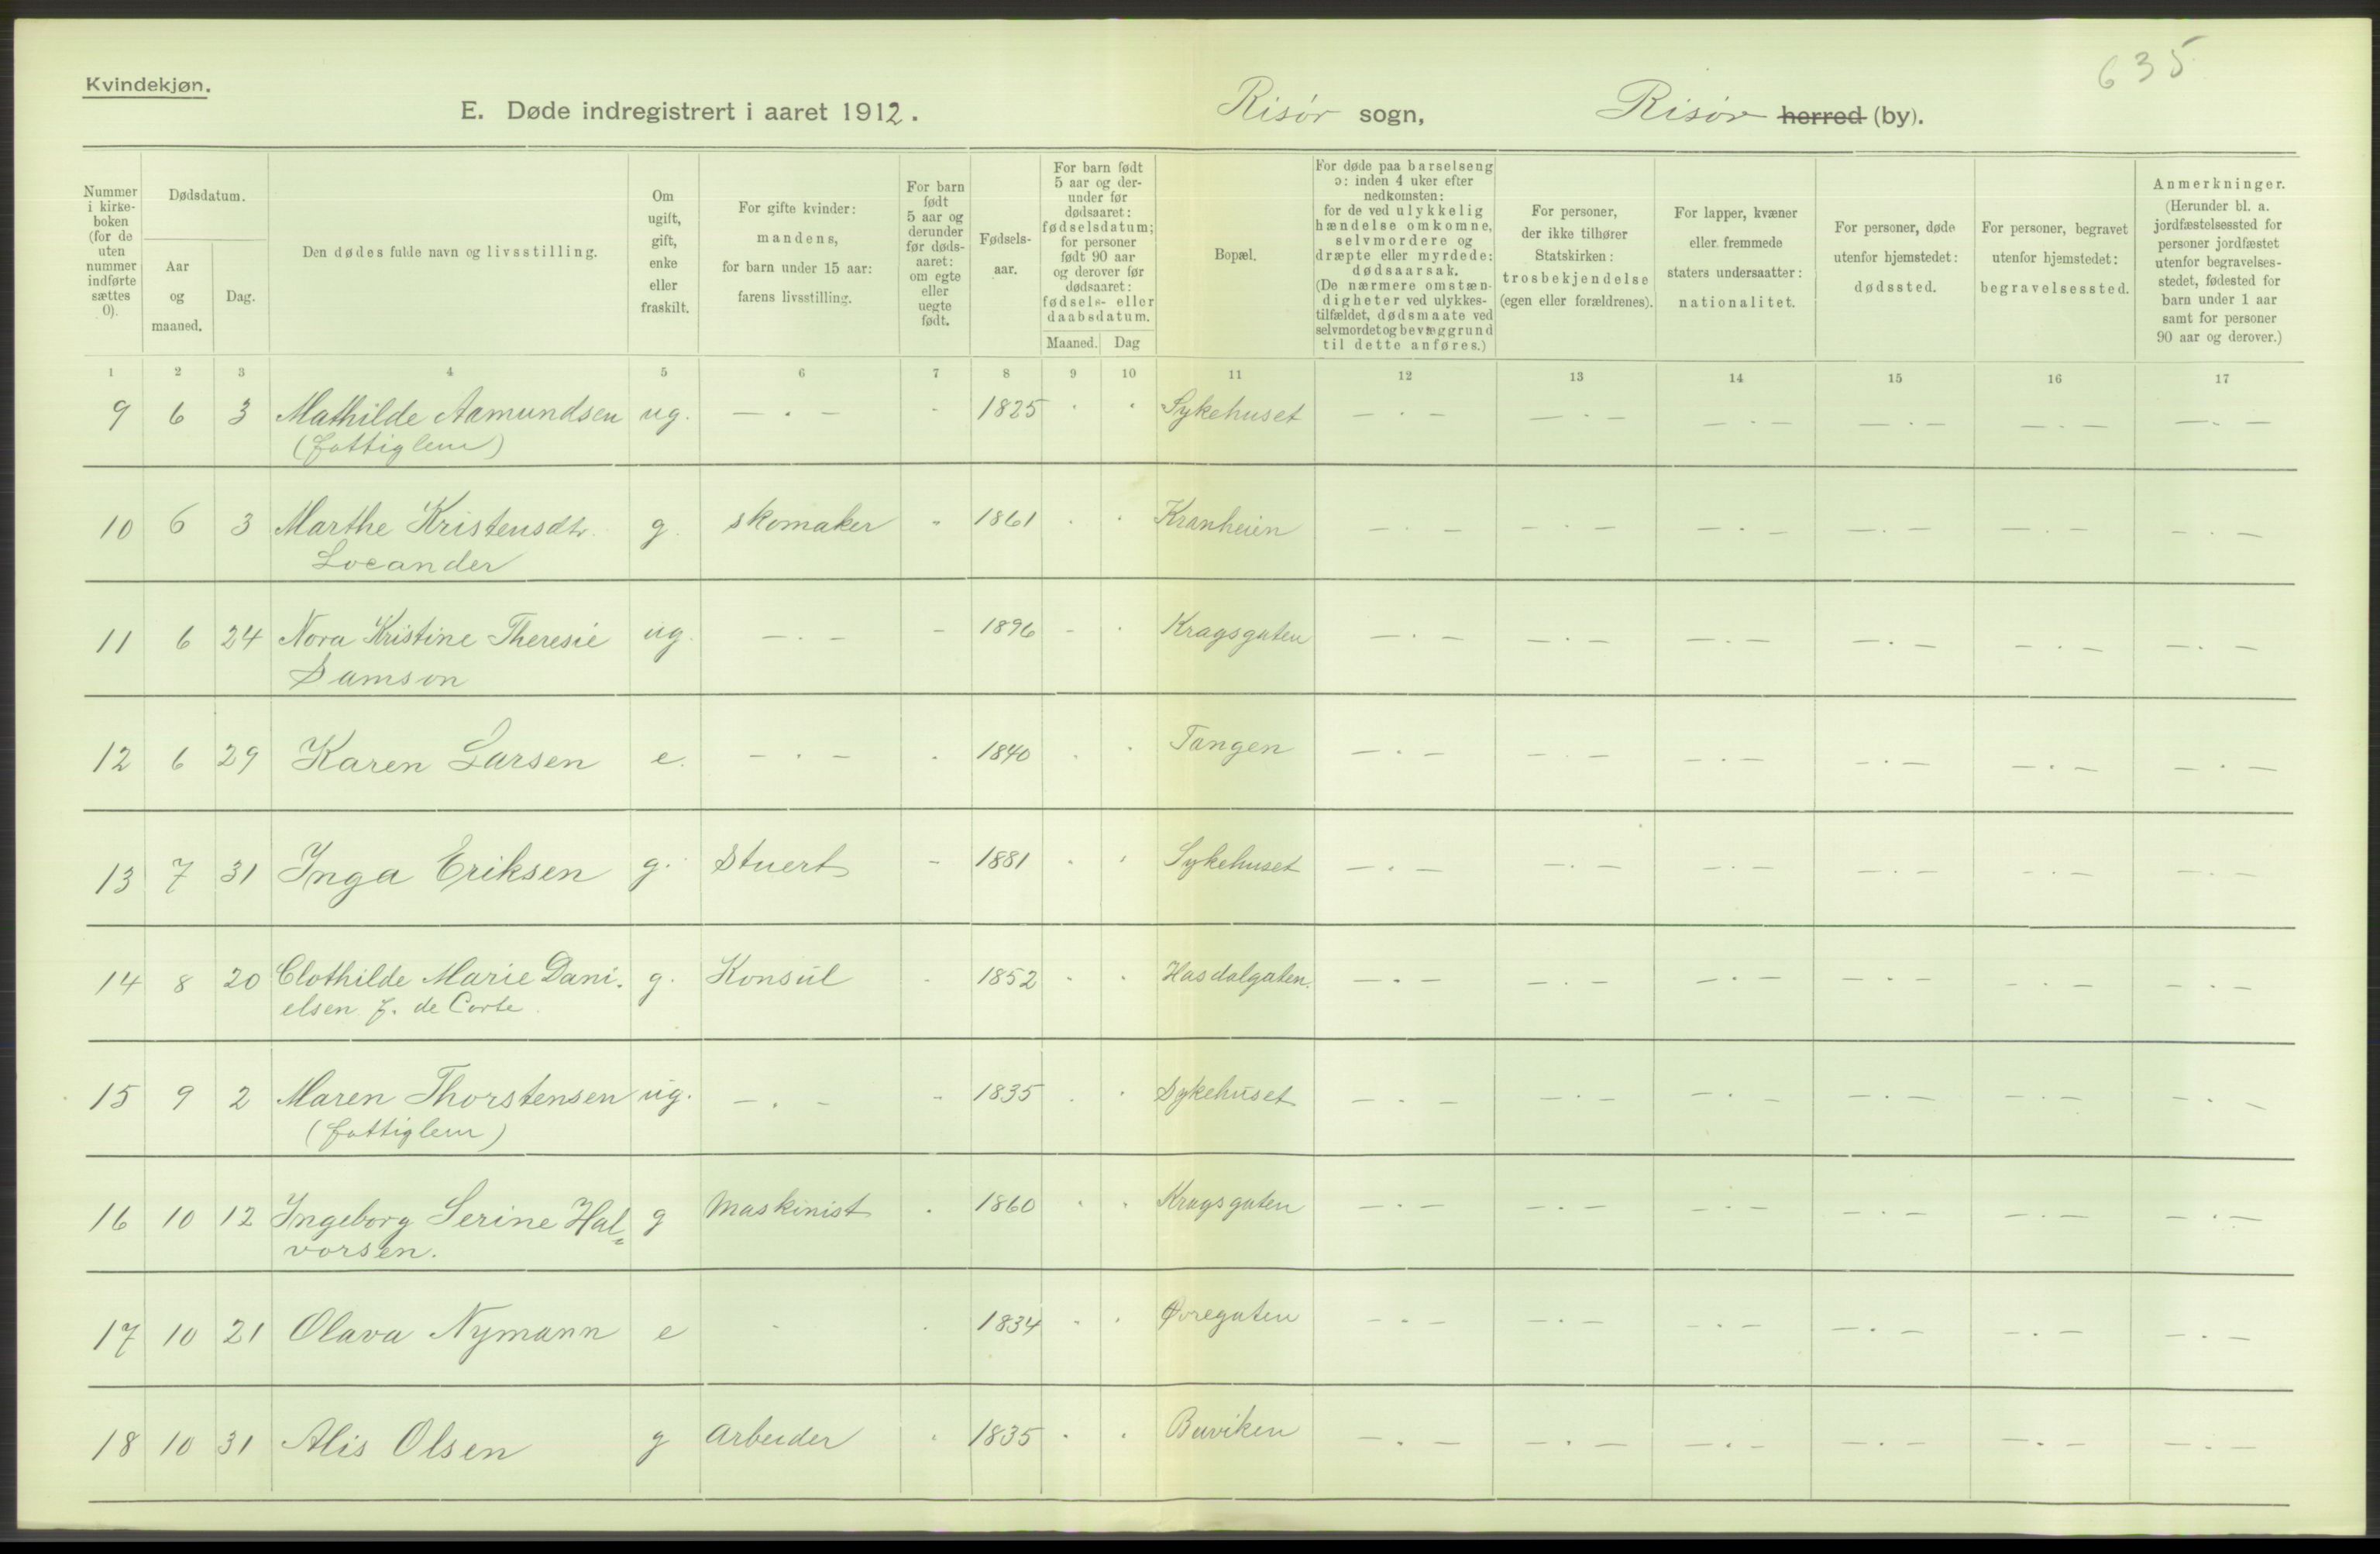 635
Kvindekjøn.
E. Døde indregistrert i aaret 1912. Risør sogn, Risør herred (by).
Nummer i kirke-boken (for de uten nummer indførte sættes 0).
Dødsdatum.
Aar og maaned.
Dag.
Den dødes fulde navn og livsstilling.
Om ugift, gift, enke eller fraskilt.
For gifte kvinder: mandens, for barn under 15 aar: farens livsstilling.
For barn født 5 aar og derunder før døds-aaret: om egte eller uegte født.
Fødsels-aar.
For barn født 5 aar og der-under før dødsaaret: fødselsdatum; for personer født 90 aar og derover før dødsaaret: fødsels- eller daabsdatum.
Maaned. Dag
Bopæl.
For døde paa barselseng ɔ: inden 4 uker efter nedkomsten: for de ved ulykkelig hændelse omkomne, selvmordere og dræpte eller myrdede: dødsaarsak. (De nærmere omstæn-digheter ved ulykkes-tilfældet, dødsmaate ved selvmordet og bevæggrund til dette anføres.)
For personer, der ikke tilhører Statskirken: trosbekjendelse (egen eller forældrenes).
For lapper, kvæner eller fremmede staters undersaatter: nationalitet.
For personer, døde utenfor hjemstedet: dødssted.
For personer, begravet utenfor hjemstedet: begravelsessted.
Anmerkninger. (Herunder bl. a. jordfæstelsessted for personer jordfæstet utenfor begravelses-stedet, fødested for barn under 1 aar samt for personer 90 aar og derover.)
1 2 3 4 5 6 7 8 9 10 11 12 13 14 15 16 17
9 6 3 Mathilde Aamundsen ug. — . — - 1825 . . Sykehuset — . — — . — — . — — . — — . — — . —
(fattiglem)
10 6 3 Marthe Kristensdtr. g. skomaker - 1861 . . Kranheien — . — — . — — . — — . — — . — — . —
Locander
11 6 24 Nora Kristine Theresie ug. — . — - 1896 - . Kragsgaten — . — — . — — . — — . — — . — — . —
Samson
12 6 29 Karen Larsen e. — . — . 1840 . . Tangen — . — — . — — . — — . — — . — — . —
13 7 31 Inga Eriksen g. Stuert - 1881 . . Sykehuset — . — — . — — . — — . — — . — — . —
14 8 20 Clothilde Marie Dani. g. Konsul - 1852 . . Hasdalgaten. — . — — . — — . — — . — — . — — . —
elsen f. de Corte.
15 9 2 Maren Thorstensen ug. — . — - 1835 . . Sykehuset — . — — . — — . — — . — — . — — . —
(fattiglem)
16 10 12 Ingeborg Serine Hal= g Maskinist . 1860 . . Kragsgaten — . — — . — — . — — . — — . — — . —
vorsen.
17 10 21 Olava Nymann e - . 1834 . . Øvregaten — . — — . — — . — — . — — . — — . —
18 10 31 Alis Olsen g Arbeider . 1835 . . Buviken — . — — . — — . — — . — — . — — . —